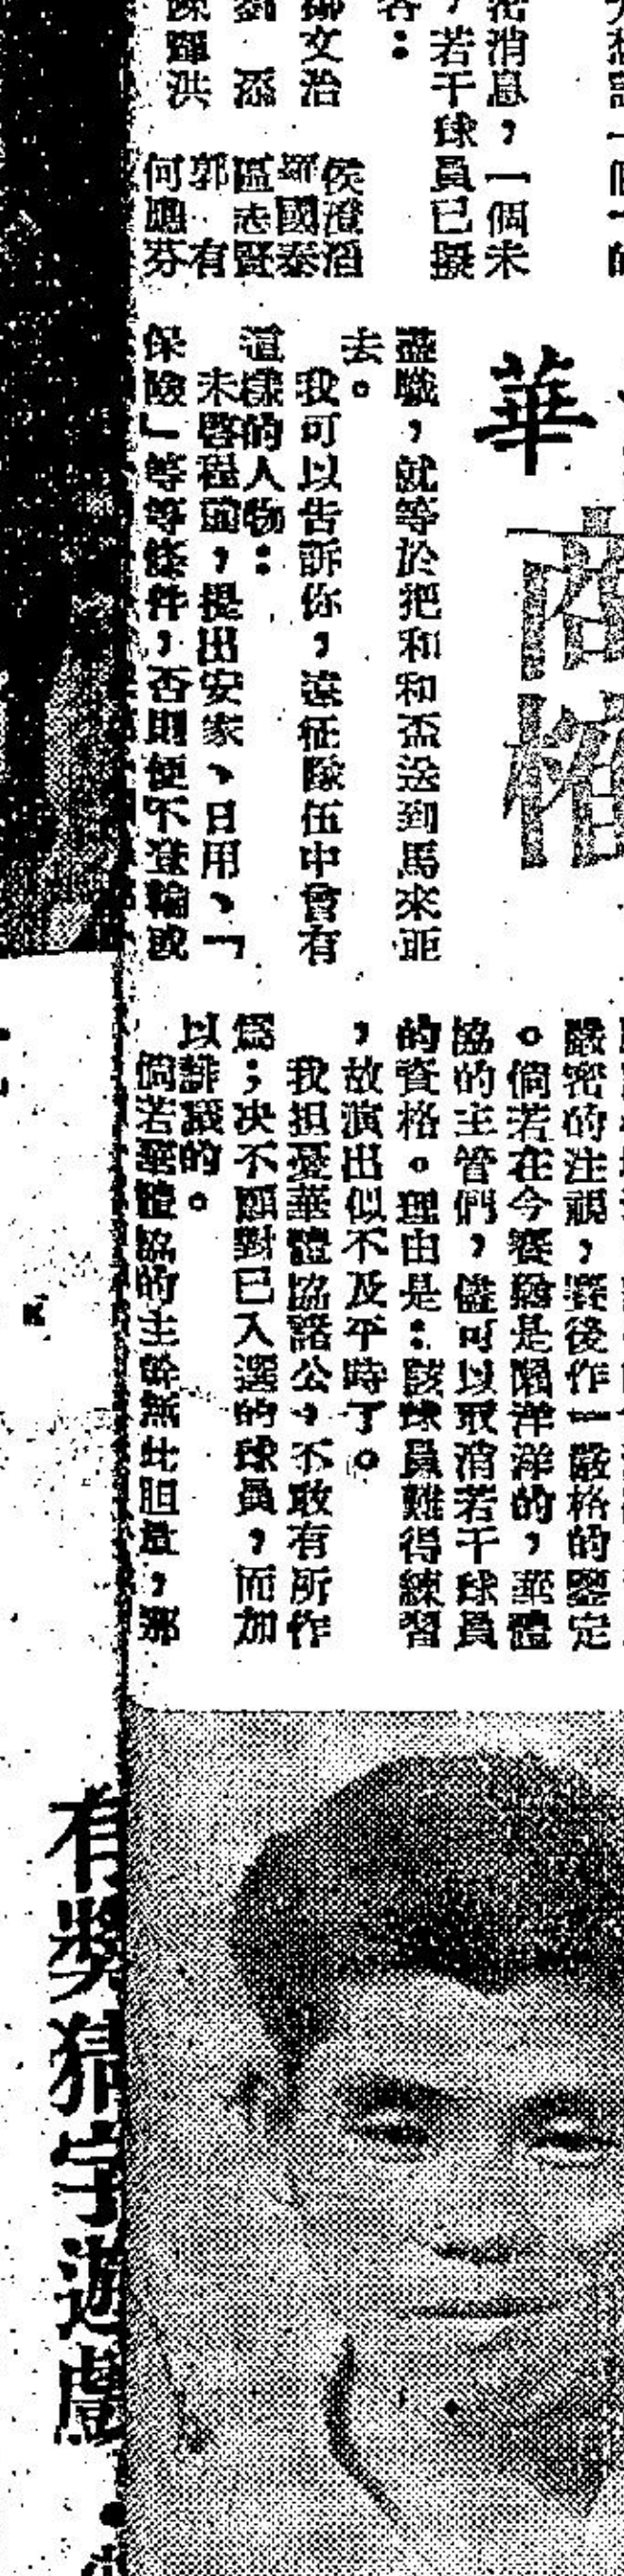 密消息，一個未
，若干球員已擬
容：
柳文治　侯澄滔
羅國泰
劉　添　區志賢
郭　有
陳輝洪　何應芬
華
商
格
盡職，就等於把和和盃送到馬來亞
去。
我可以告訴你，遠征隊伍中會有
這樣的人物：
未啓程前，提出安家、日用、「
保險」等等條件，否則便不登輪或
嚴密的注視，賽後作一嚴格的鑒定
。倘若在今賽猶是陽洋洋的，華體
協的主管們，儘可以取消若干球員
的資格。理由是：該球員難得練習
，故演出似不及平時了。
我担憂華體協諸公，不敢有所作
爲；决不願對已入選的球員，而加
以誹議的。
倘若華體協的主幹無此胆量，那
有獎猜字遊戲